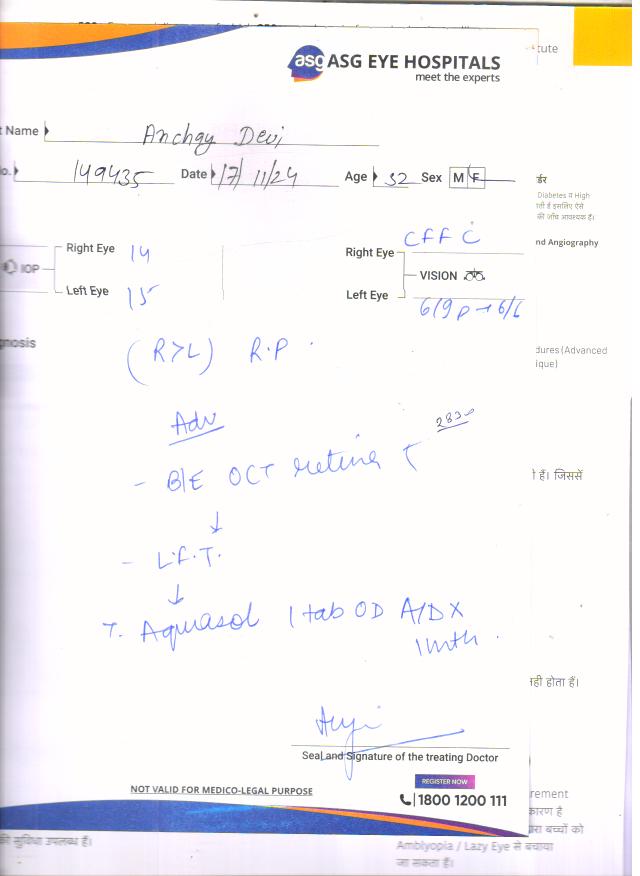 tute
asg ASG EYE HOSPITALS
meet the experts
t Name Anchay Devi
o. 149435 Date 17/11/24 Age 32 Sex M F
र्डर
Diabetes या High
रती है इसलिए ऐसे
की जाँच आवश्यक हैं।
nd Angiography
IOP
Right Eye 14
Left Eye 15
Right Eye CFFC
VISION
Left Eye 6/9p → 6/6
gnosis
(R>L) R.P.
dures (Advanced
ique)
Adv
283
- B/E OCT retina
↓
ो हैं। जिससें
- L.F.T.
↓
T. Aquasol 1 tab OD A/D X
1 mth.
नही होता हैं।
Seal and Signature of the treating Doctor
REGISTER NOW
NOT VALID FOR MEDICO-LEGAL PURPOSE
1800 1200 111
rement
कारण है
द्वारा बच्चों को
की सुविधा उपलब्ध हैं।
Amblyopia / Lazy Eye से बचाया
जा सकता हैं।